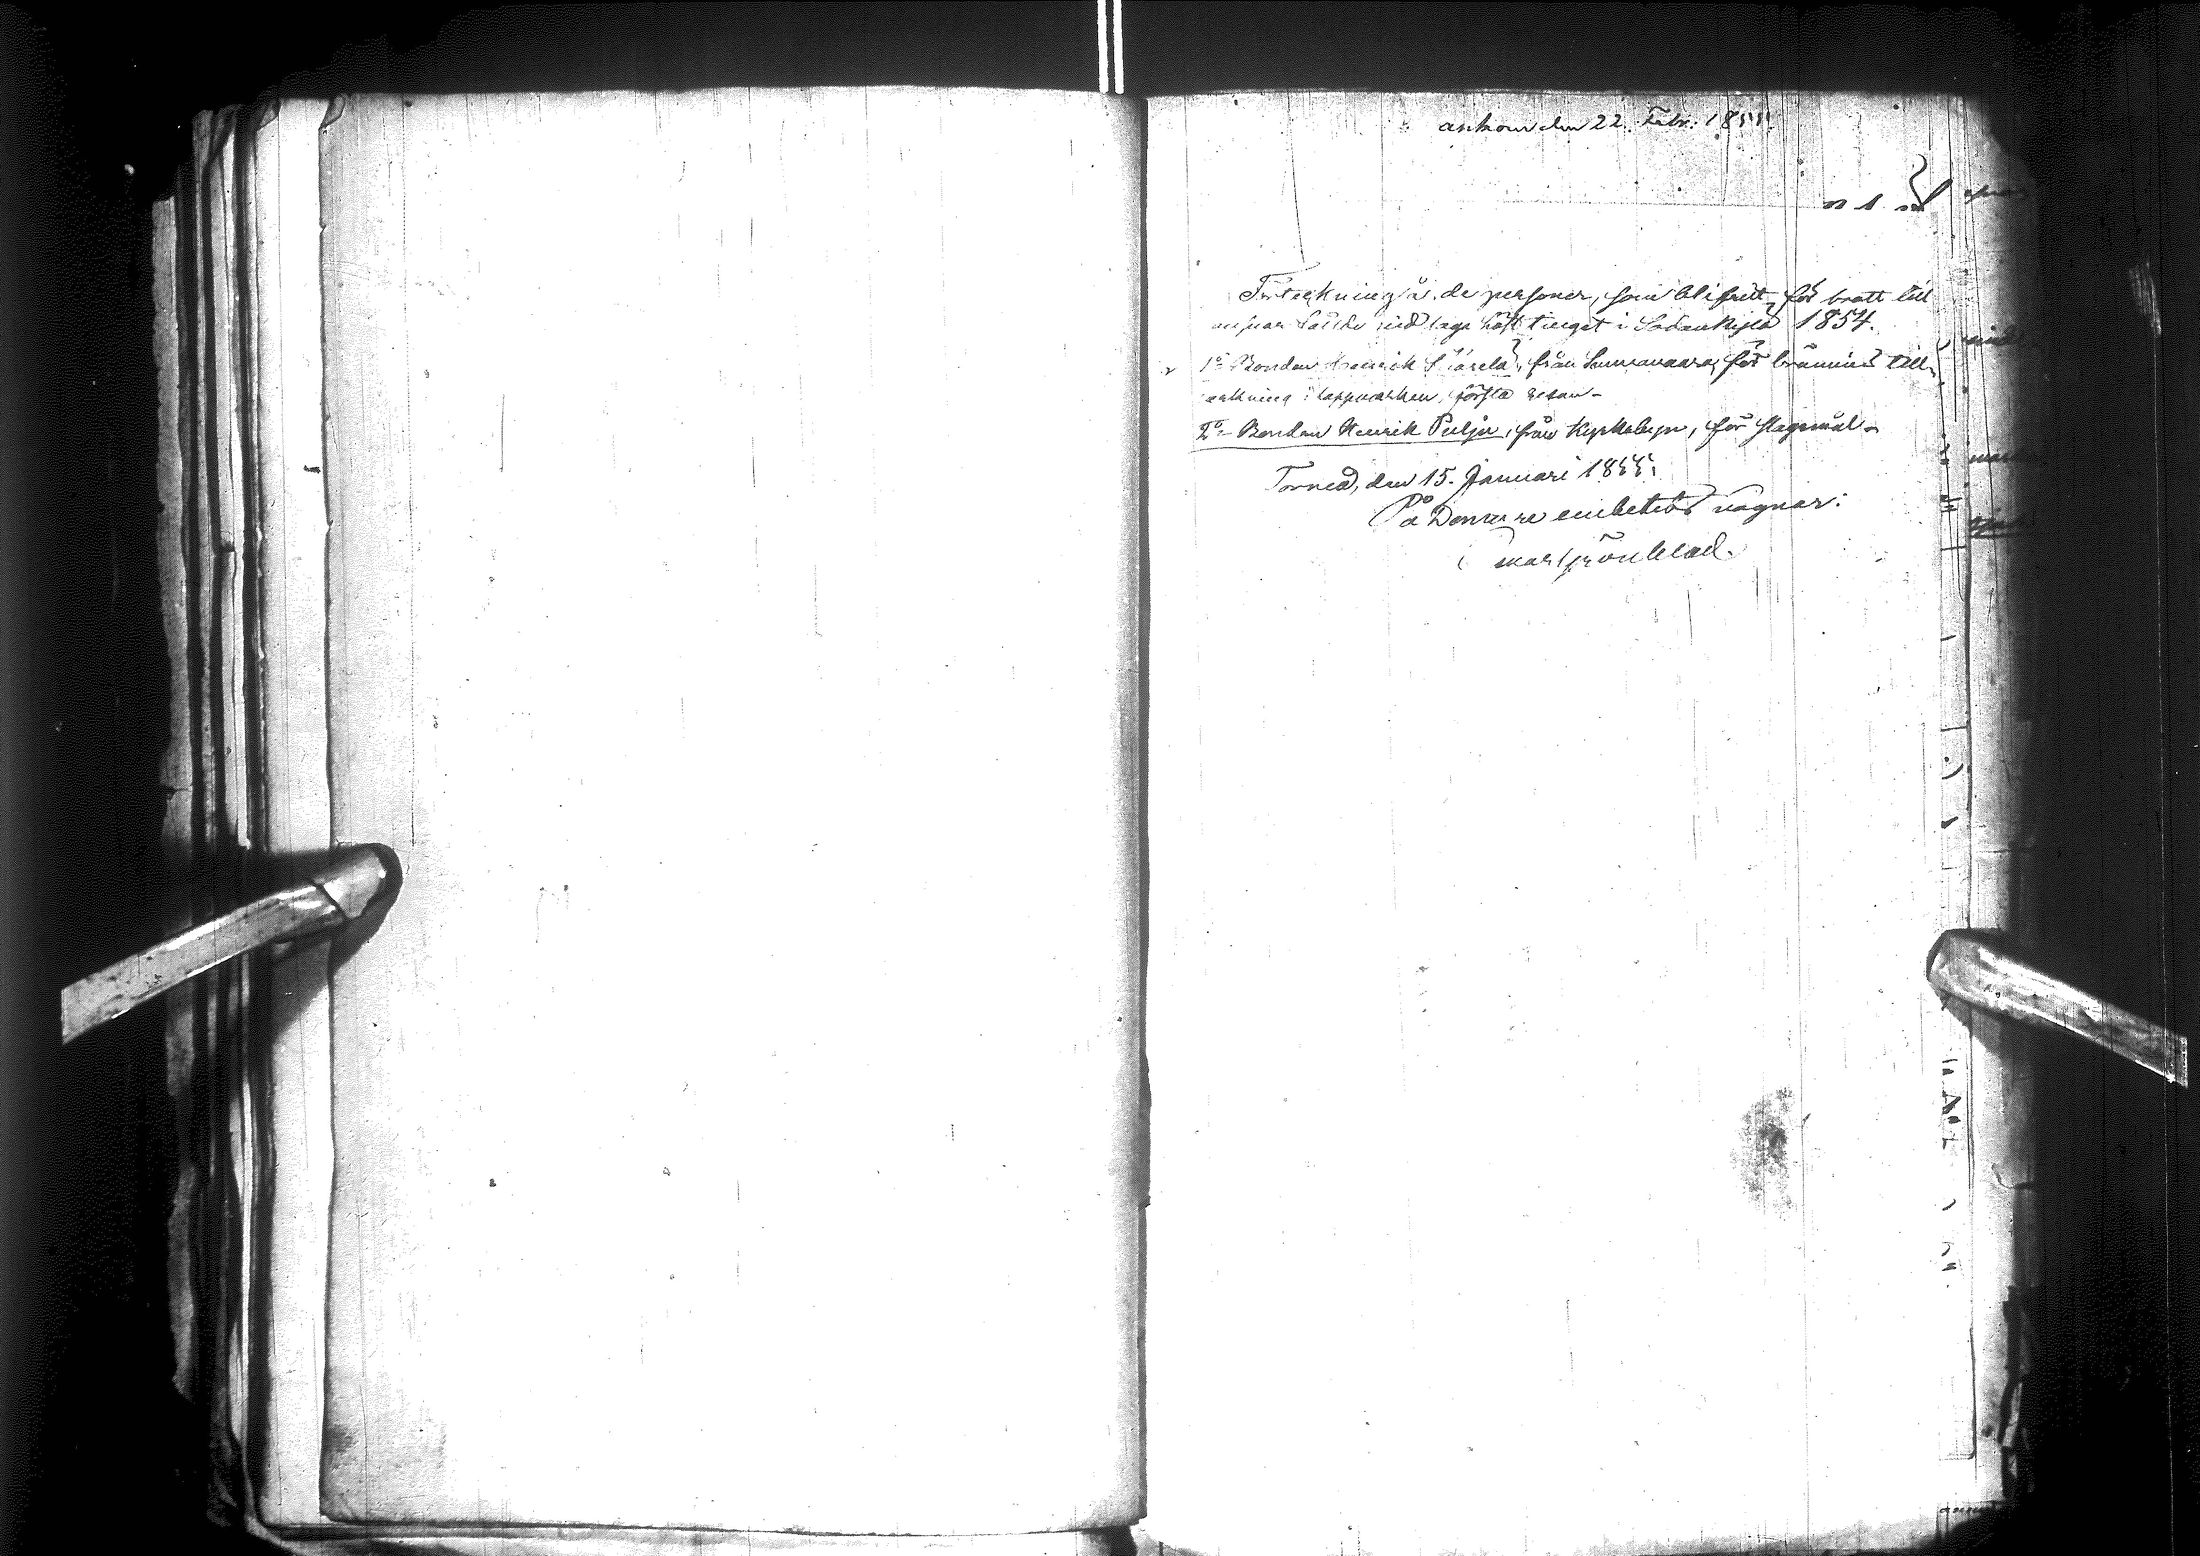 ankom den 22. Febr. 1855.
n 1.
Förteckning å de personer, som blifvit för brott till
ansvar fällde vid laga höst tinget i Sodankylä 1854.
1o Bonden Henrik Siärelä, från Sunnavaara, för brännvins till-
verkning i lappmarken, första resan.
2o Bonden Henrik Pulju, från Kyrkobyn, för slagsmål.
Torneå, den 15. Januari 1855.
På Domare embetets vägnar: